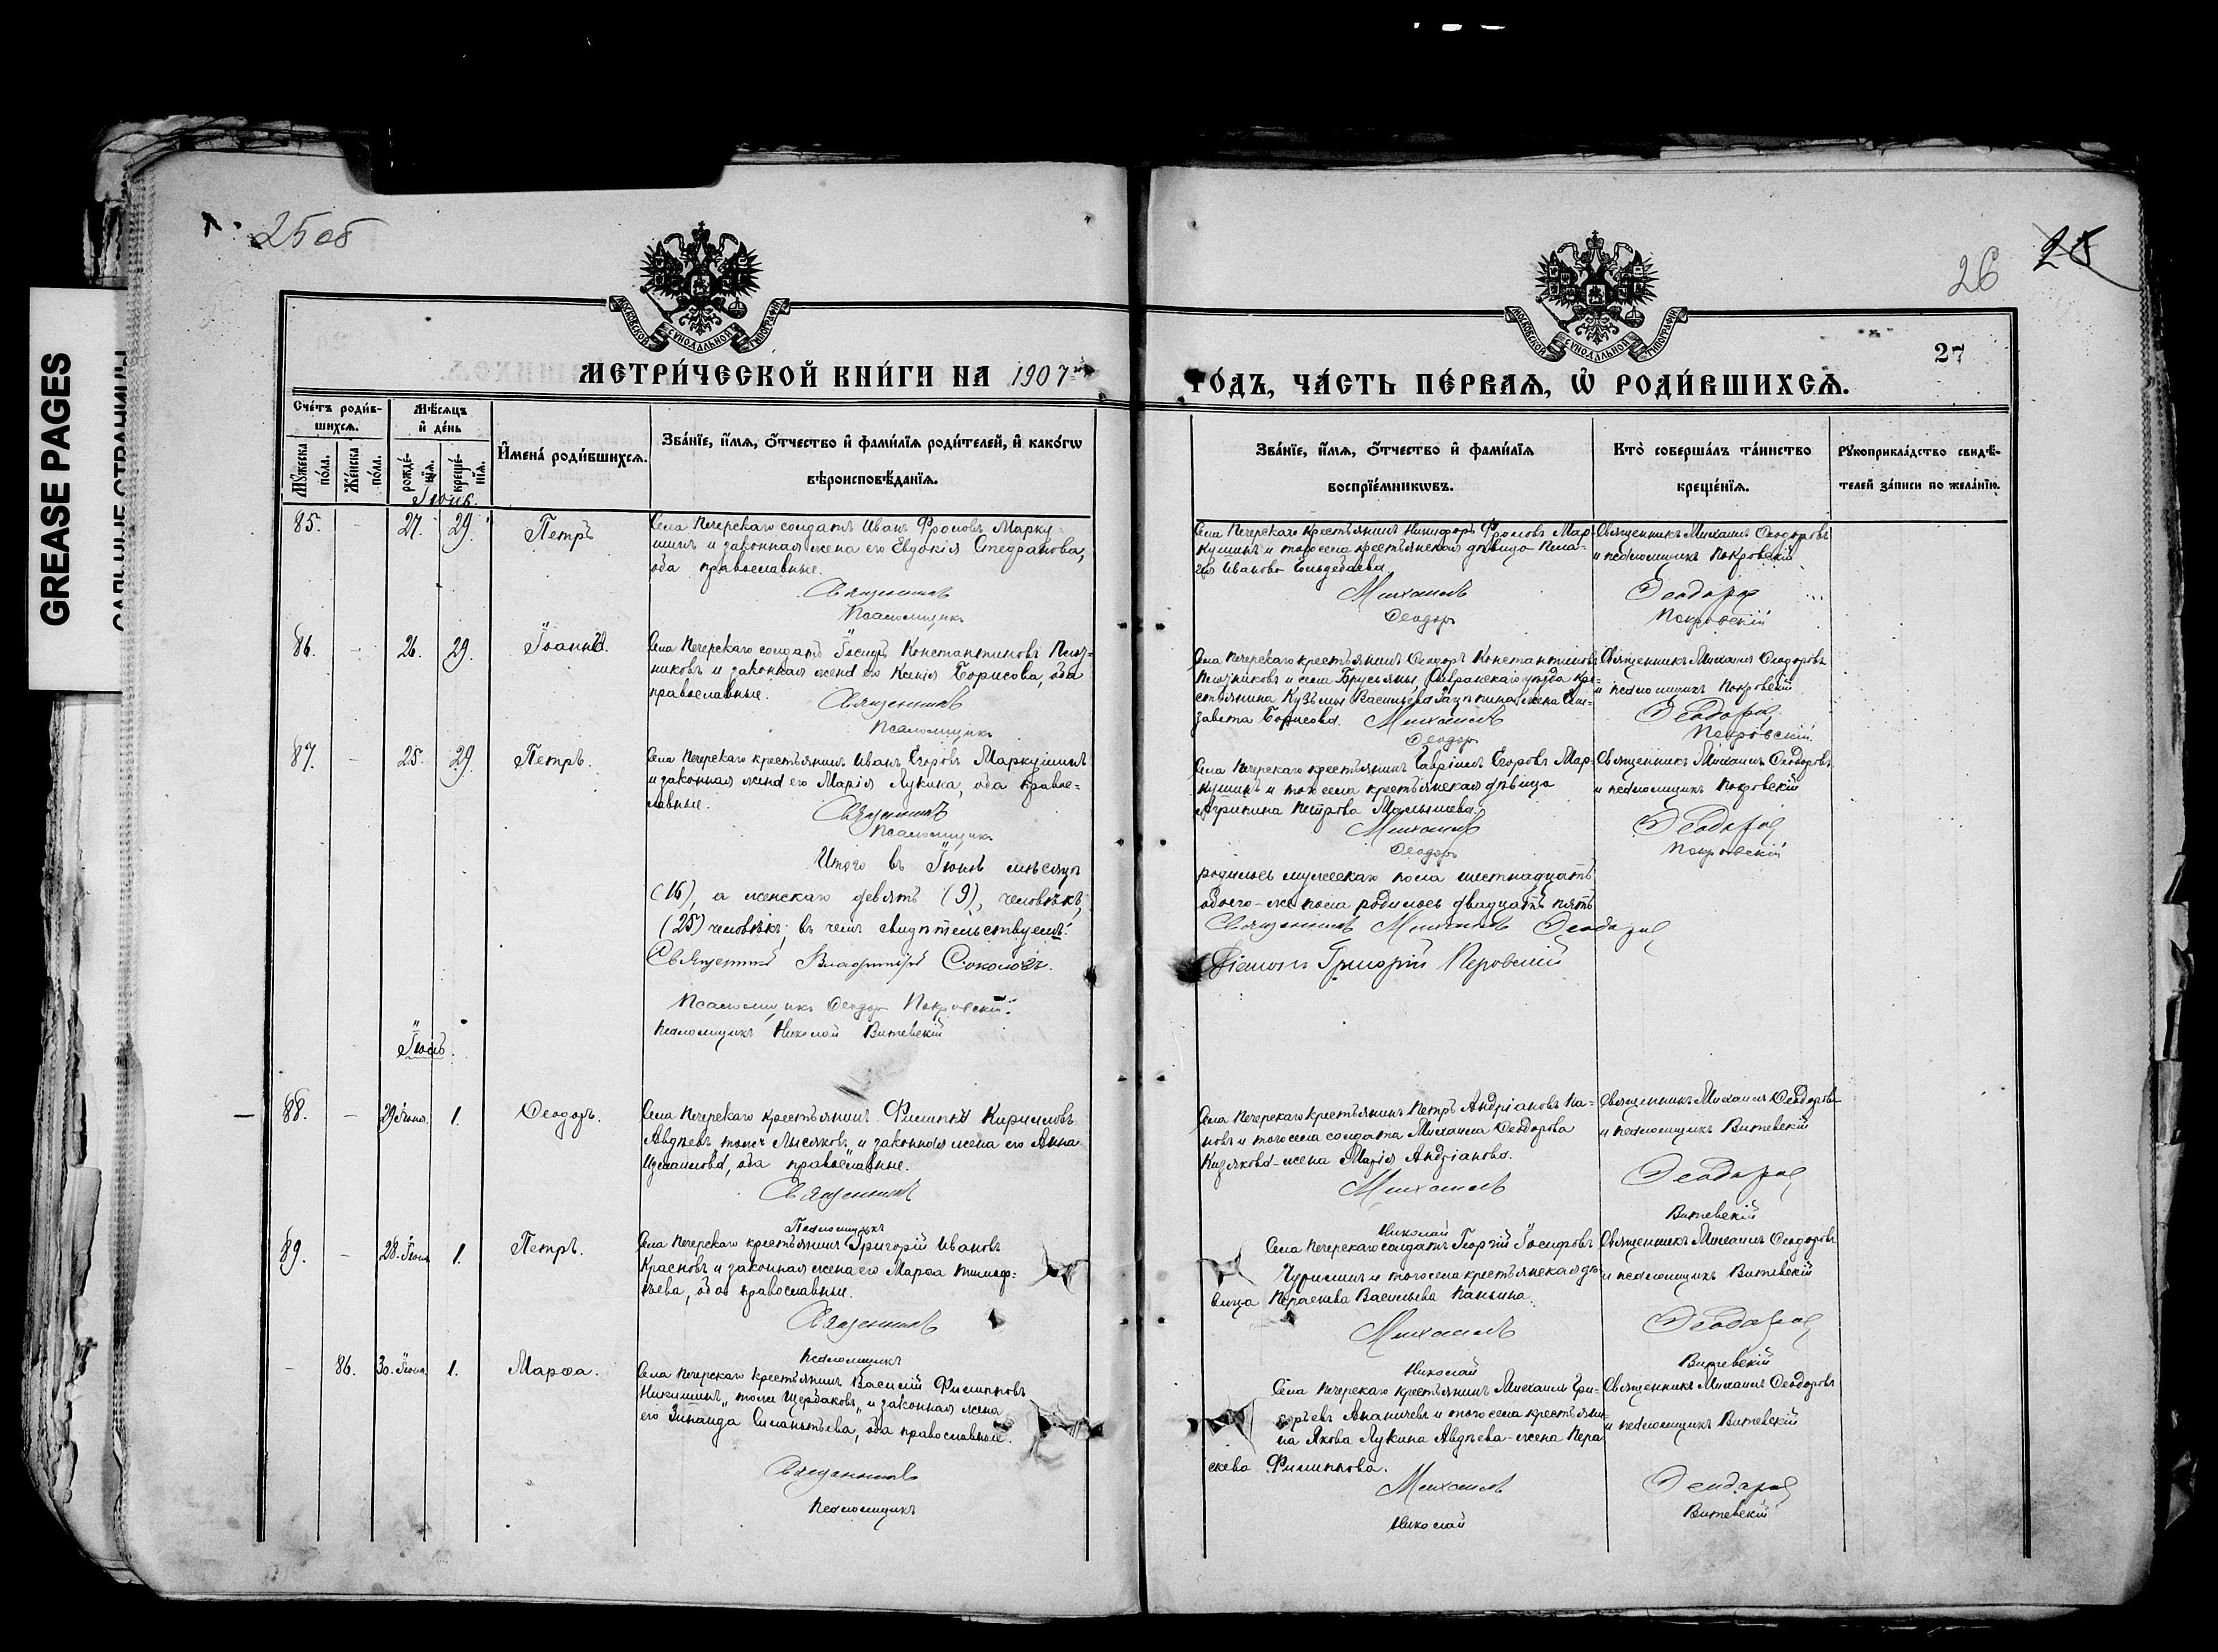 25 об
26
28
27
GREASE PAGES
МОСКОВСКОЙ СѴНОДАЛЬНОЙ ТИПОГРАФІИ
МОСКОВСКОЙ СѴНОДАЛЬНОЙ ТИПОГРАФІИ
МЕТРИ́ЧЕСКОЙ КНИ́ГИ НА 1907 й
ГО́ДЪ, ЧА́СТЬ ПЕ́РВАѦ, Ѡ РОДИ́ВШИХСѦ.
Сче́тъ роди́в-
шихсѧ.
Мѣ́сѧцъ
и де́нь
Мꙋ́жеска по́ла.
Же́нска по́ла.
рожде́-нїѧ.
креще́-нїѧ.
И҆мена̀ роди́вшихсѧ.
Зва́нїе, и҆́мѧ, ѻ҆́тчество и҆ фами́лїѧ роди́телей, и҆ како́гѡ
вѣроисповѣ́данїѧ.
Зва́нїе, и҆́мѧ, ѻ҆́тчество и҆ фами́лїѧ
воспрїе́мникѡвъ.
Кто̀ соверша́лъ та́инство
креще́нїѧ.
Рꙋкоприкла́дство свидѣ́-
телей за́писи по жела́нїю.
Іюнь.
85. - 27. 29. Петръ
Села Печерскаго солдатъ Иванъ Фроловъ Марку-
шинъ и законная жена его Евдокія Стефанова,
оба православные.
Священникъ
Псаломщикъ
Села Печерскаго крестьянинъ Никифоръ Фроловъ Мар-
кушинъ и того села крестьянская дѣвица Пела-
гія Иванова
Михаилъ
Ѳеодоръ
Священникъ Михаилъ Ѳеодоровъ
и псаломщикъ Покровскій
Ѳеодоровъ
Покровскій
86. - 26. 29. Іоаннъ.
Села Печерскаго солдатъ Іосифъ Константиновъ
никовъ и законная жена его Ксенія Борисова, оба
православные.
Священникъ
Псаломщикъ
Села Печерскаго крестьянинъ Ѳеодоръ Константиновъ
и села Брусьяны, Сызранскаго уѣзда кре-
стьянина Кузьмы Васильева жена Ели-
завета Борисова. Михаилъ
Ѳеодоръ
Священникъ Михаилъ Ѳеодоровъ
и псаломщикъ Покровскій
Ѳеодоровъ
Покровскій.
87. - 25. 29. Петръ.
Села Печерскаго крестьянинъ Иванъ Егоровъ Маркушинъ
и законная жена его Марія Лукина, оба право-
славные.
Священникъ
Псаломщикъ
Села Печерскаго крестьянинъ Гавріилъ Егоровъ Мар-
кушинъ и того села крестьянская дѣвица
Агрипина Петрова Малышева.
Михаилъ
Ѳеодоръ
Священникъ Михаилъ Ѳеодоровъ
и псаломщикъ Покровскій
Ѳеодоровъ
Покровскій
Итого въ Іюнѣ мѣсяцѣ
родилось мужескаго пола шестнадцать
(16), а женскаго девять (9), человѣкъ,
обоего-же пола родилось двадцать пять
(25) человѣкъ; въ чемъ свидѣтельствуемъ:
Священникъ Михаилъ Ѳеодоровъ
Священникъ Владиміръ Соколовъ.
Діаконъ Григорій Перовскій
Псаломщикъ Ѳеодоръ Покровскій.
Псаломщикъ Николай Витевскій
Іюль.
88. - 29 Іюня. 1. Ѳеодоръ.
Села Печерскаго крестьянинъ Филиппъ Кирилловъ
Авдѣевъ тоже Лысяковъ и законная жена его Анна
Измаилова, оба православные.
Священникъ
Псаломщикъ
Села Печерскаго крестьянинъ Петръ Андріановъ Па-
новъ и того села солдата Михаила Ѳеодорова
Кизякова-жена Марія Андріанова.
Михаилъ
Николай
Священникъ Михаилъ Ѳеодоровъ
и псаломщикъ Витевскій
Ѳеодоровъ
Витевскій
89. - 28. Іюня 1. Петръ.
Села Печерскаго крестьянинъ Григорій Ивановъ
Красновъ и законная жена его Марѳа Тимоф-
ѣева, оба православные.
Священникъ
Псаломщикъ
Села Печерскаго солдатъ Георгій Іосифовъ
Чурилинъ и того села крестьянская дѣ-
вица Параскева Васильева Панкина.
Михаилъ
Николай
Священникъ Михаилъ Ѳеодоровъ
и псаломщикъ Витевскій
Ѳеодоровъ
Витевскій
- 86. 30. Іюня. 1. Марѳа.
Села Печерскаго крестьянинъ Василій Филипповъ
Никишинъ, „тоже Щербаковъ„ и законная жена
его Зинаида Силантьева, оба православные.
Священникъ
Псаломщикъ
Села Печерскаго крестьянинъ Михаилъ Гри-
горьевъ Ананичевъ и того села крестьяни-
на Якова Лукина Авдѣева-жена Пара
скева Филиппова.
Михаилъ
Николай
Священникъ Михаилъ Ѳеодоровъ
и псаломщикъ Витевскій
Ѳеодоровъ
Витевскій